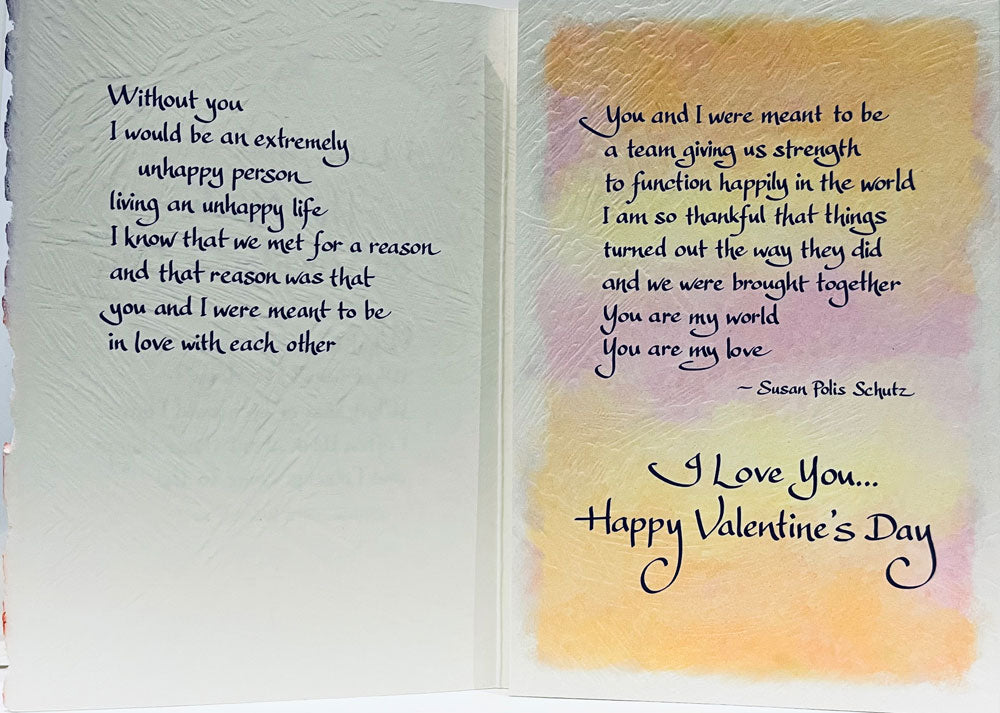 Without you
I would be an extremely
unhappy person
living an unhappy life
I know that we met for a reason
and that reason was that
you and I were meant to be
in love with each other
You and I were meant to be
a team giving us strength
to function happily in the world
I am so thankful that things
turned out the way they did
and we were brought together
You are my world
You are my love
~ Susan Polis Schutz
I Love You...
Happy Valentine's Day